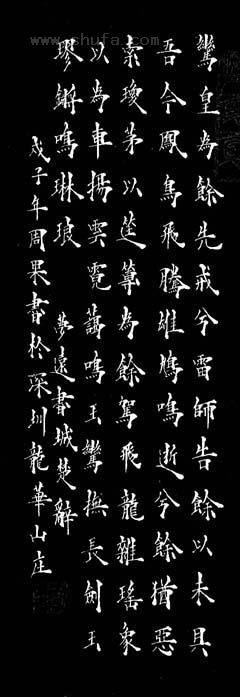 鸞皇為餘先戒兮雷師告餘以未具
吾令鳳鳥飛騰雄鳩鳴逝兮餘猶惡
索瓊茅以筳篿為餘駕飛龍雜瑤象
以為車揚雲霓藹鳴玉鸞撫長劍玉
璆鏘鳴琳琅 夢遠書城楚辭
戊子年周果書於深圳龍華山庄
www.shufa.com